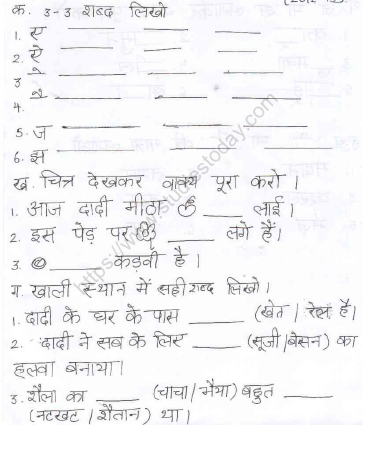 क. 3-3 शब्द लिखो
1. ए
2. ऐ
3 े
4. ै
5. ज
6. झ
ख. चित्र देखकर वाक्य पूरा करो।
1. आज दादी मीठा ____ लाई।
2. इस पेड़ पर ____ लगे हैं।
3. ____ कड़वी है।
ग. खाली स्थान में सही शब्द लिखो।
1. दादी के घर के पास ____ (खेत / रेल है।
2. दादी ने सब के लिए ____ (सूजी/बेसन) का
हलवा बनाया।
3. शैला का ____ (चाचा/भैया) बहुत ____
(नटखट / शैतान) था।
https://www.studiestoday.com